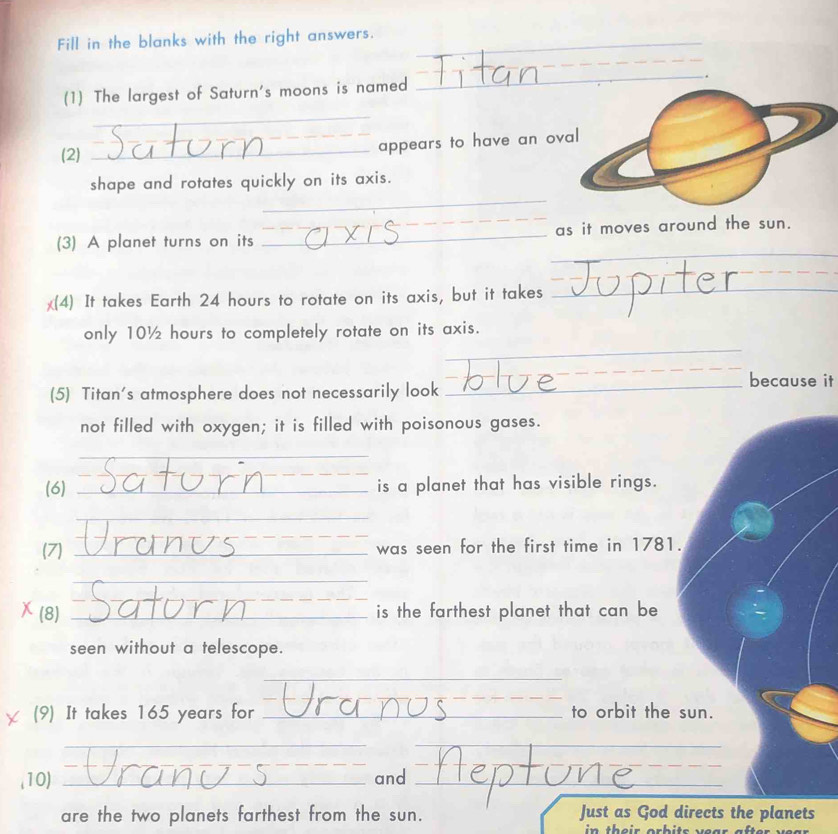 Fill in the blanks with the right answers.
(1) The largest of Saturn's moons is named Titan.
(2) Saturn appears to have an oval
shape and rotates quickly on its axis.
(3) A planet turns on its axis as it moves around the sun.
x(4) It takes Earth 24 hours to rotate on its axis, but it takes Jupiter
only 10½ hours to completely rotate on its axis.
(5) Titan's atmosphere does not necessarily look blue because it
not filled with oxygen; it is filled with poisonous gases.
(6) Saturn is a planet that has visible rings.
(7) Uranus was seen for the first time in 1781.
x (8) Saturn is the farthest planet that can be
seen without a telescope.
x (9) It takes 165 years for Uranus to orbit the sun.
10) Uranus and Neptune
are the two planets farthest from the sun.
Just as God directs the planets
in their orbits year after year